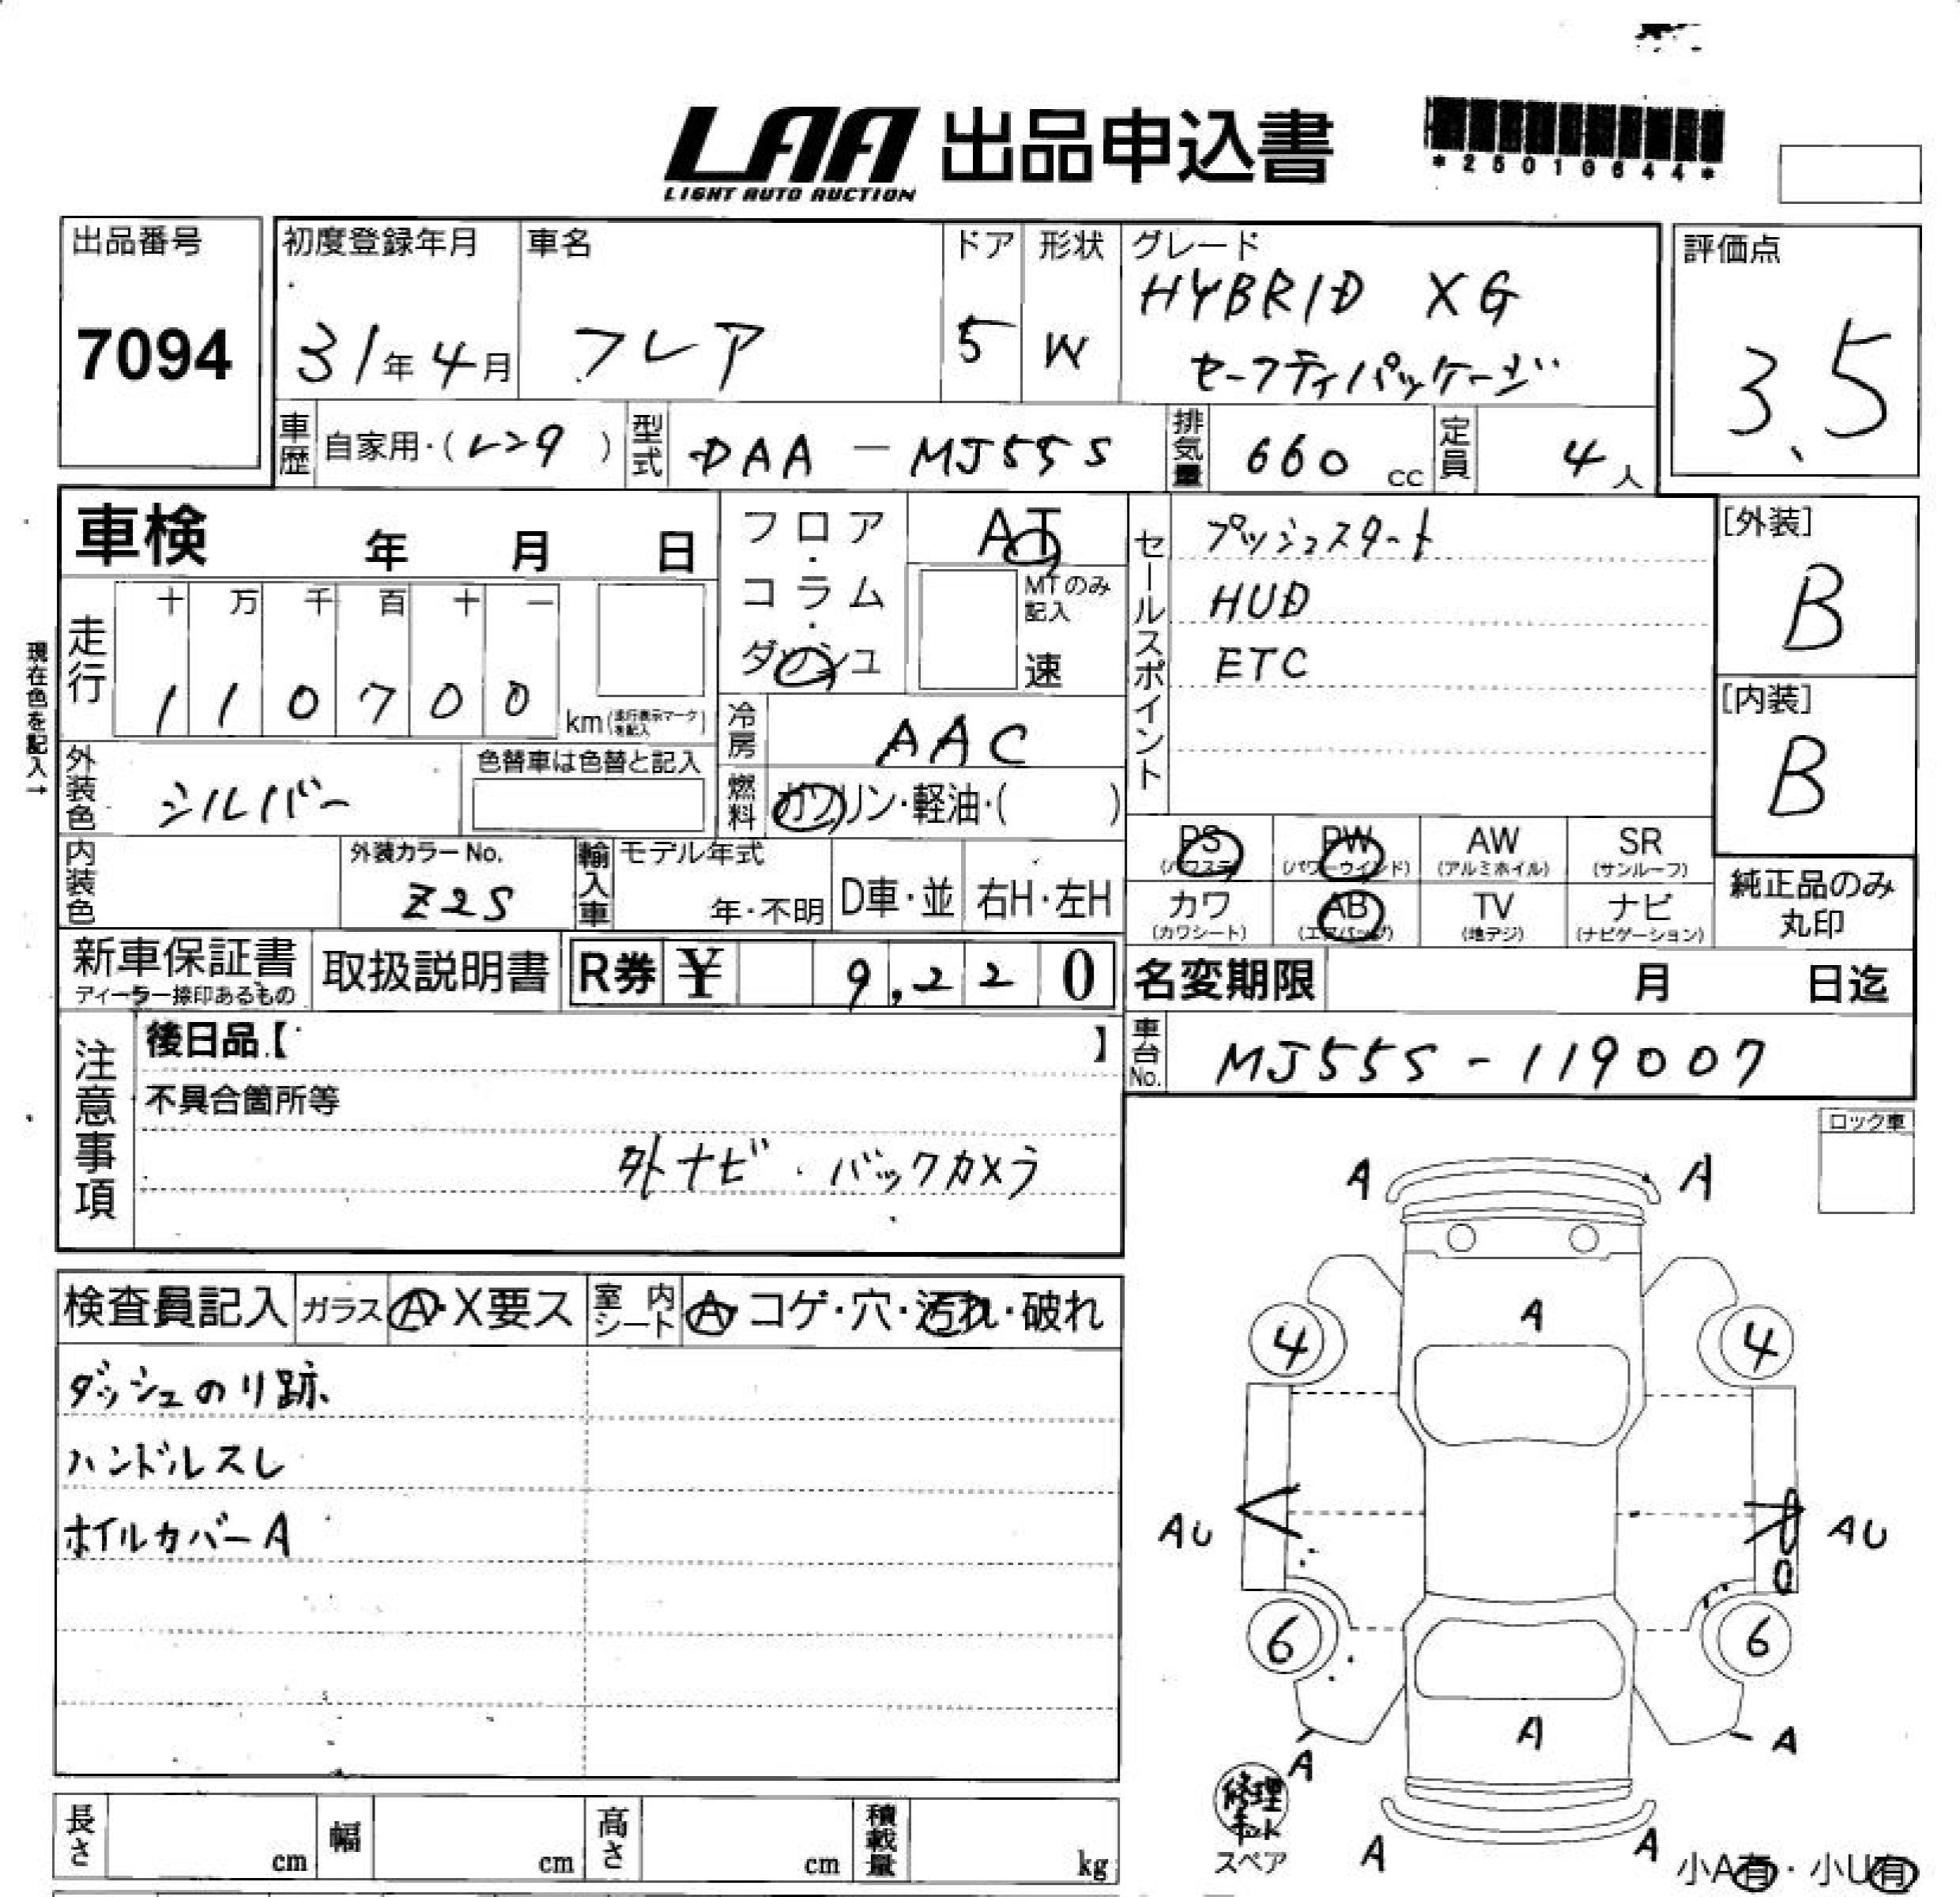 LAA 出品申込書
LIGHT AUTO AUCTION
*25010644*
出品番号
7094
初度登録年月
31年4月
車名
フレア
ドア
5
形状
W
グレード
HYBRID XG
セーフティパッケージ
評価点
3.5
車歴
自家用・(レンタ)
型式
DAA-MJ55S
排気量
660 cc
定員
4人
車検 年 月 日
フロア・コラム・ダッシュ
AT
MTのみ記入
速
現在色を記入→
走行
十 万 千 百 十 一
1 1 0 7 0 0
km(走行表示マークを記入)
冷房
AAC
外装色
シルバー
色替車は色替と記入
燃料
ガソリン・軽油・( )
セールスポイント
プッシュスタート
HUD
ETC
[外装]
B
[内装]
B
内装色
外装カラーNo.
Z2S
輸入車
モデル年式
年・不明
D車・並
右H・左H
PS (パワステ)
PW (パワーウインド)
AW (アルミホイル)
SR (サンルーフ)
カワ (カワシート)
AB (エアバッグ)
TV (地デジ)
ナビ (ナビゲーション)
純正品のみ丸印
新車保証書
ディーラー捺印あるもの
取扱説明書
R券 ¥ 9,220
名変期限 月 日迄
注意事項
後日品【 】
不具合箇所等
外ナビ・バックカメラ
車台No.
MJ55S-119007
ロック車
検査員記入
ガラス A・X要ス
室内シート A・コゲ・穴・汚れ・破れ
ダッシュのり跡
ハンドルスレ
ホイルカバーA
A A
A
4 4
AU AU
6 6
A
A A
修理キット
スペア
A A
小A有・小U有
長さ cm
幅 cm
高さ cm
積載量 kg